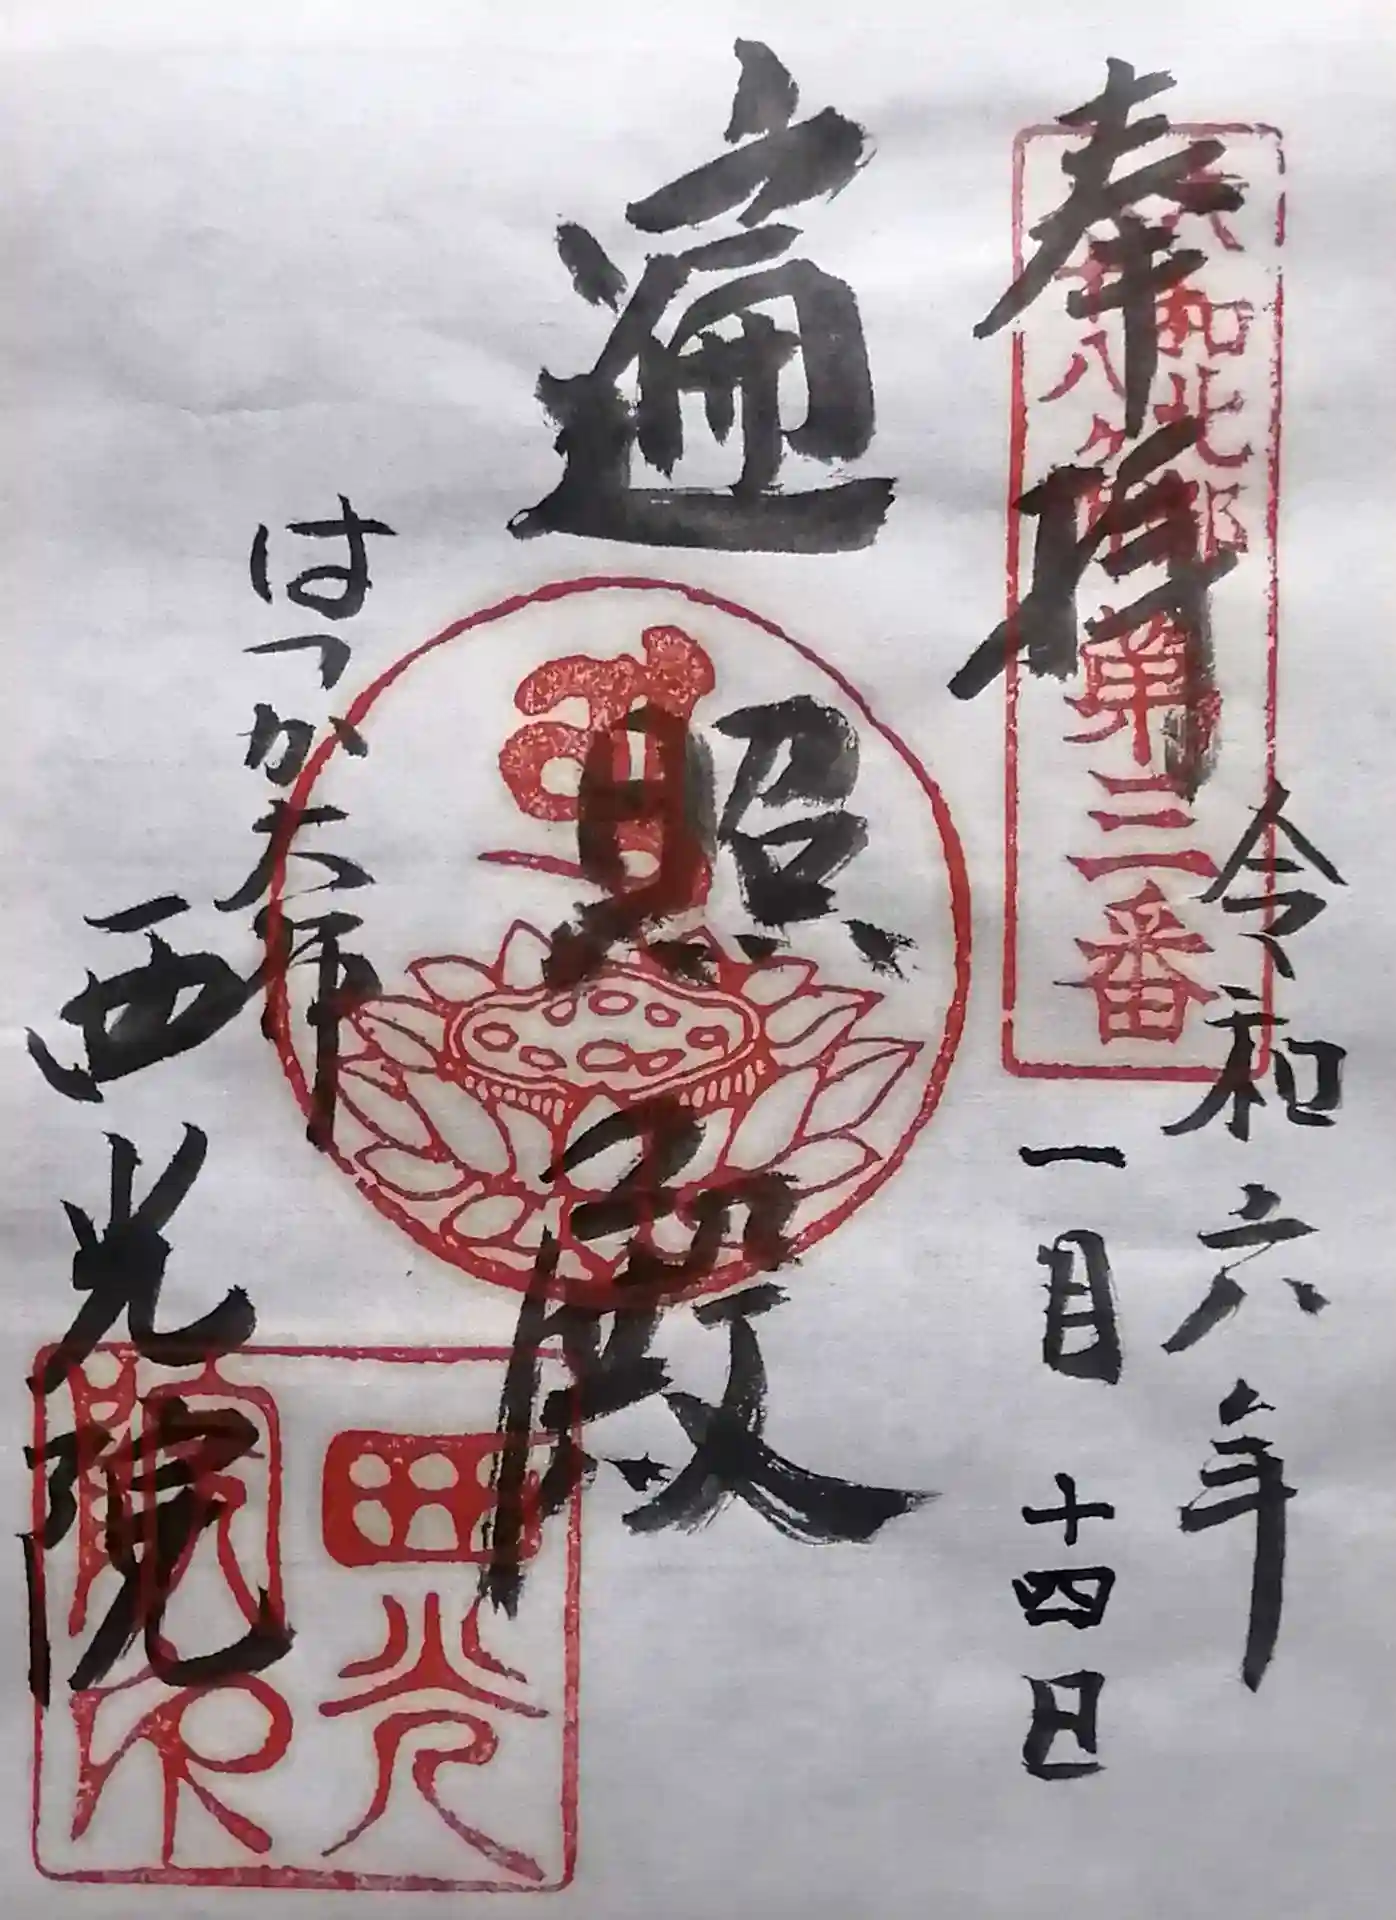 奉拝
大和北部
八十八ヶ所第三番
令和六年
一月十四日
遍照殿
はっか大師
西光院